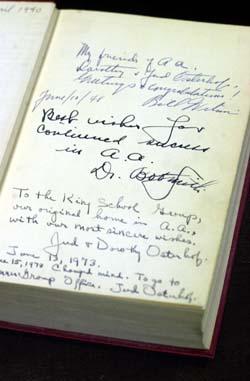 April 1940
My friends of A.A.
Dorothy & Jud Osterhof,
Greetings & congratulations!
Bill Wilson
June/10/48
Best wishes for
continued success
in A.A.
Dr. Bob Smith.
To the King School Group,
our original home in A.A.,
with our most sincere wishes.
Jud & Dorothy Osterhof.
June 13, 1973.
15, 1978 Changed mind. To go to
Group Office. Jud Osterhof.